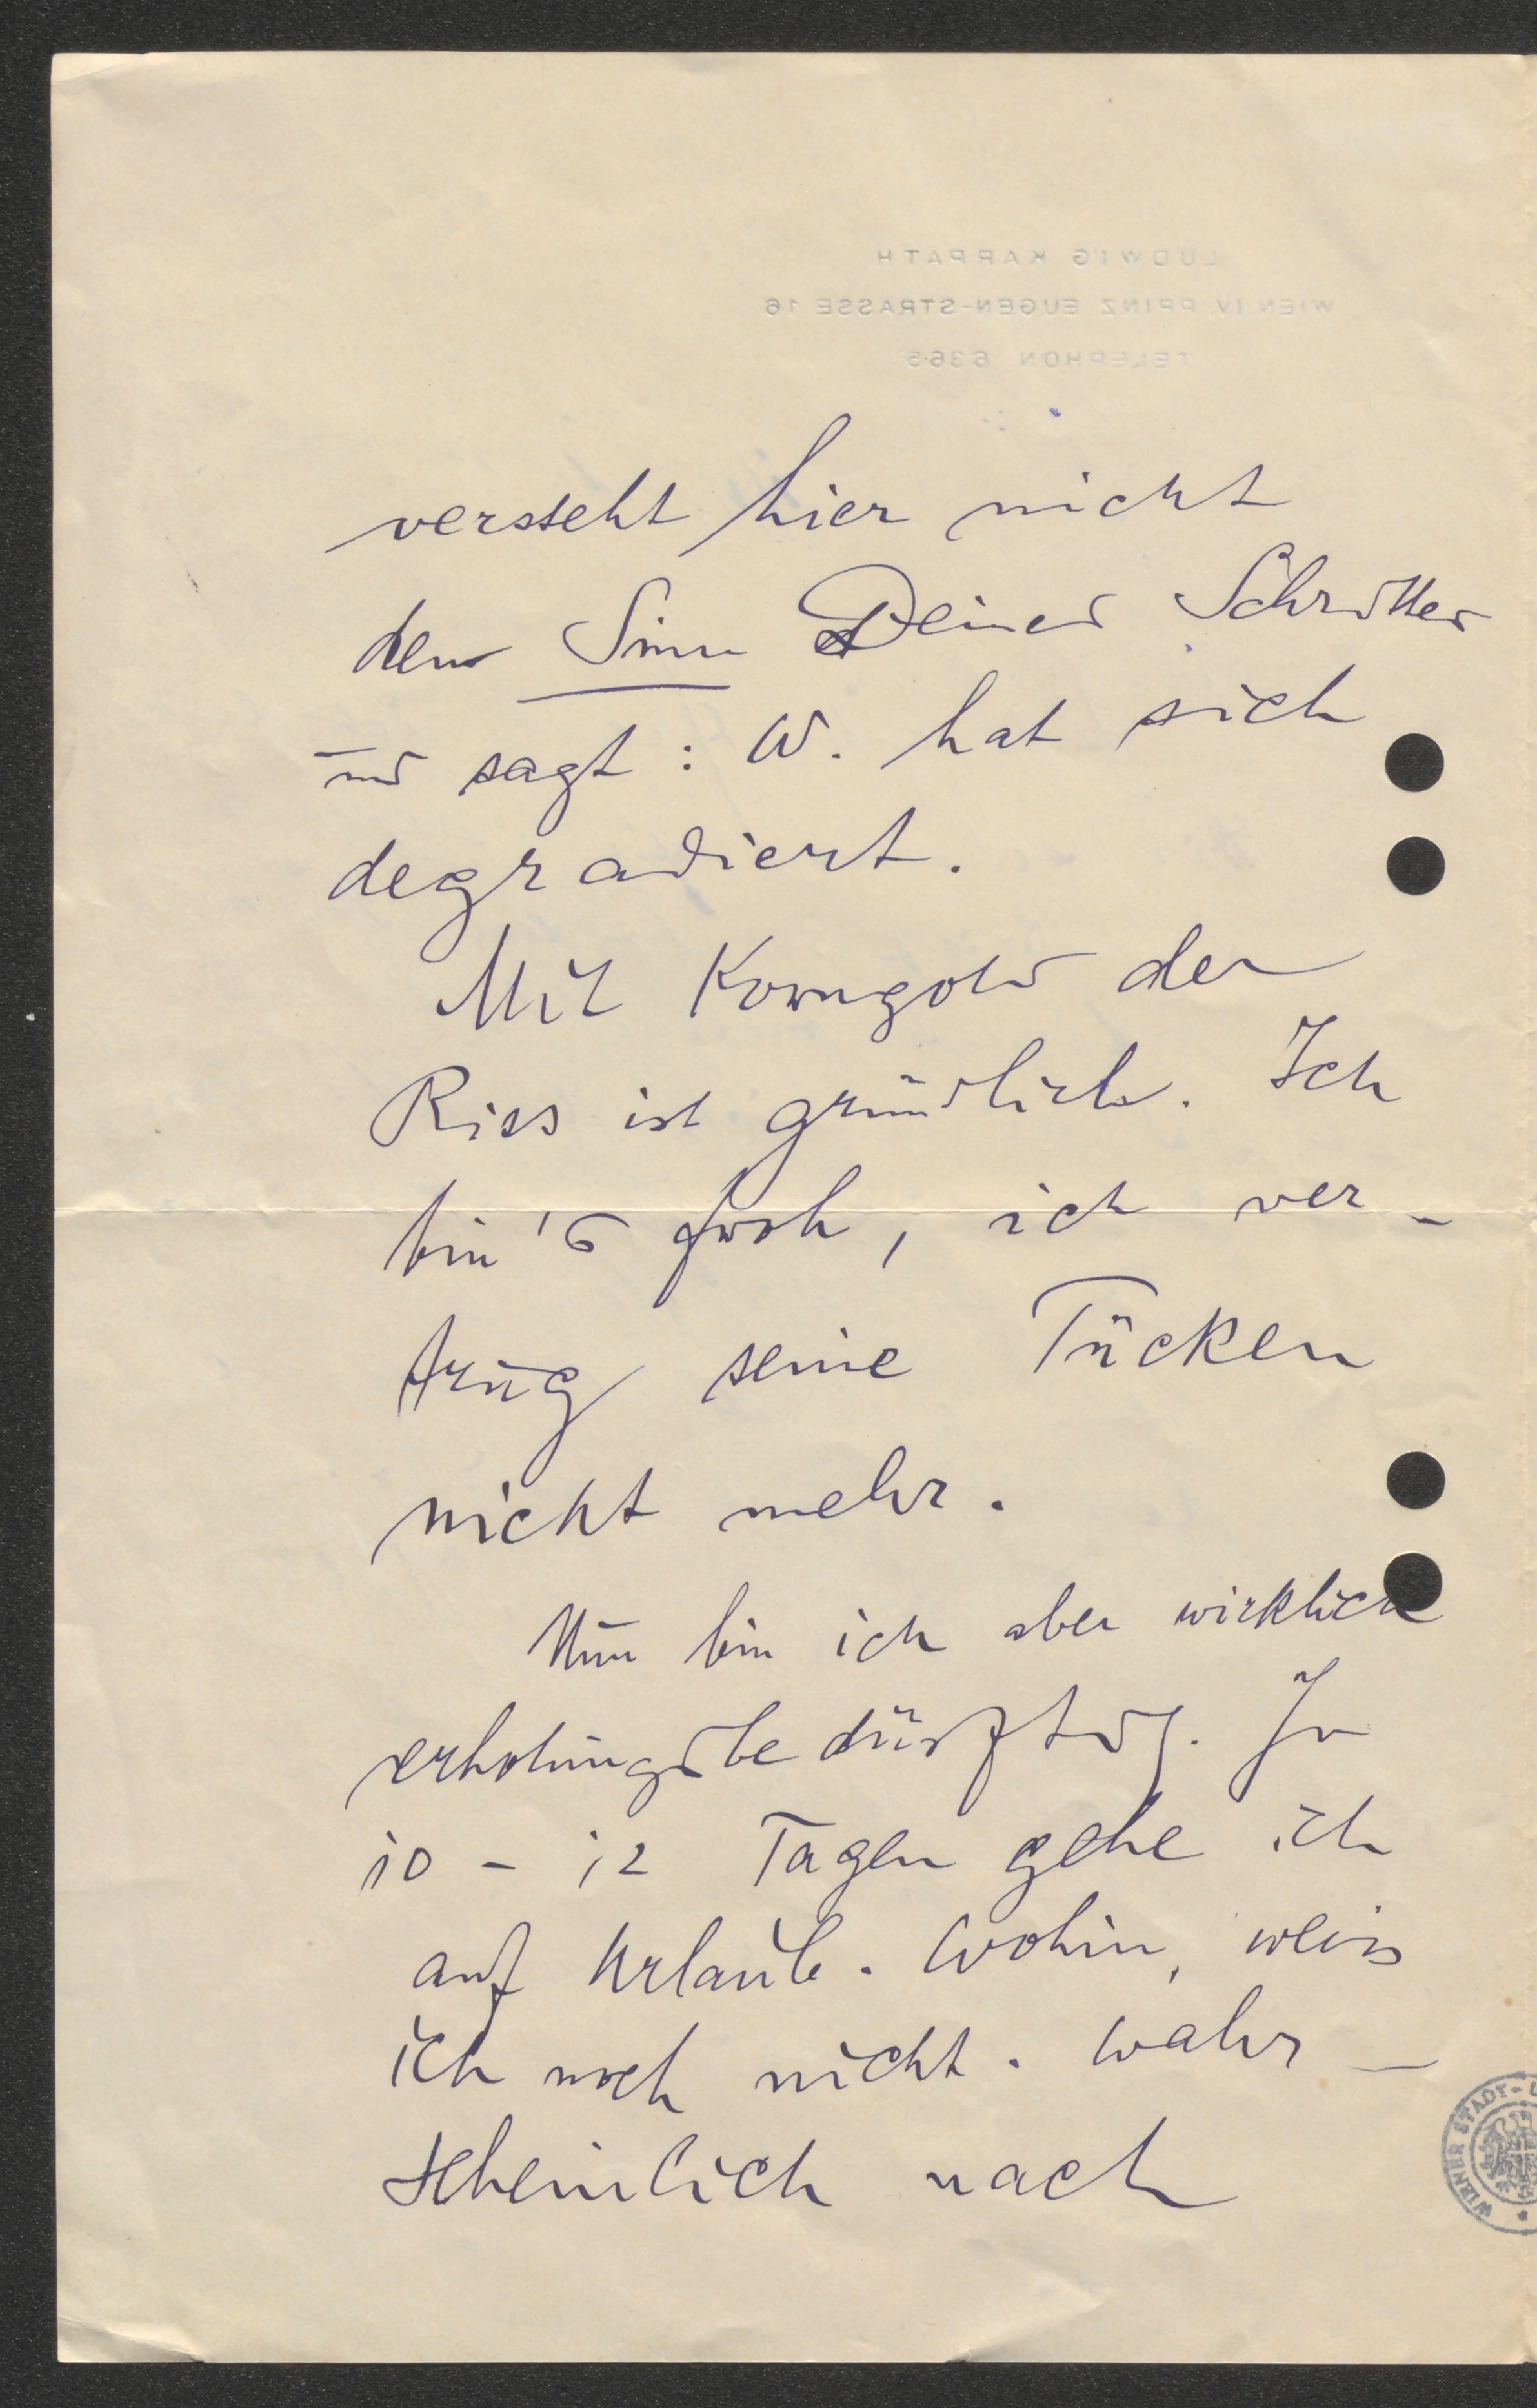 LUDWIG KARPATH
WIEN IV. PRINZ EUGEN-STRASSE 16
TELEPHON 6365
versteht hier nicht
den Sinn Deines Schrittes
und sagt: W. hat sich
degradiert.
Mit Korngold der
Riss ist gründlich. Ich
bin's froh, ich ver-
trug seine Tücken
nicht mehr.
Nun bin ich aber wirklich
erholungsbedürftig. In
10 - 12 Tagen gehe ich
auf Urlaub. Wohin, weiss
ich noch nicht. Wahr-
scheinlich nach
WIENER STADT-